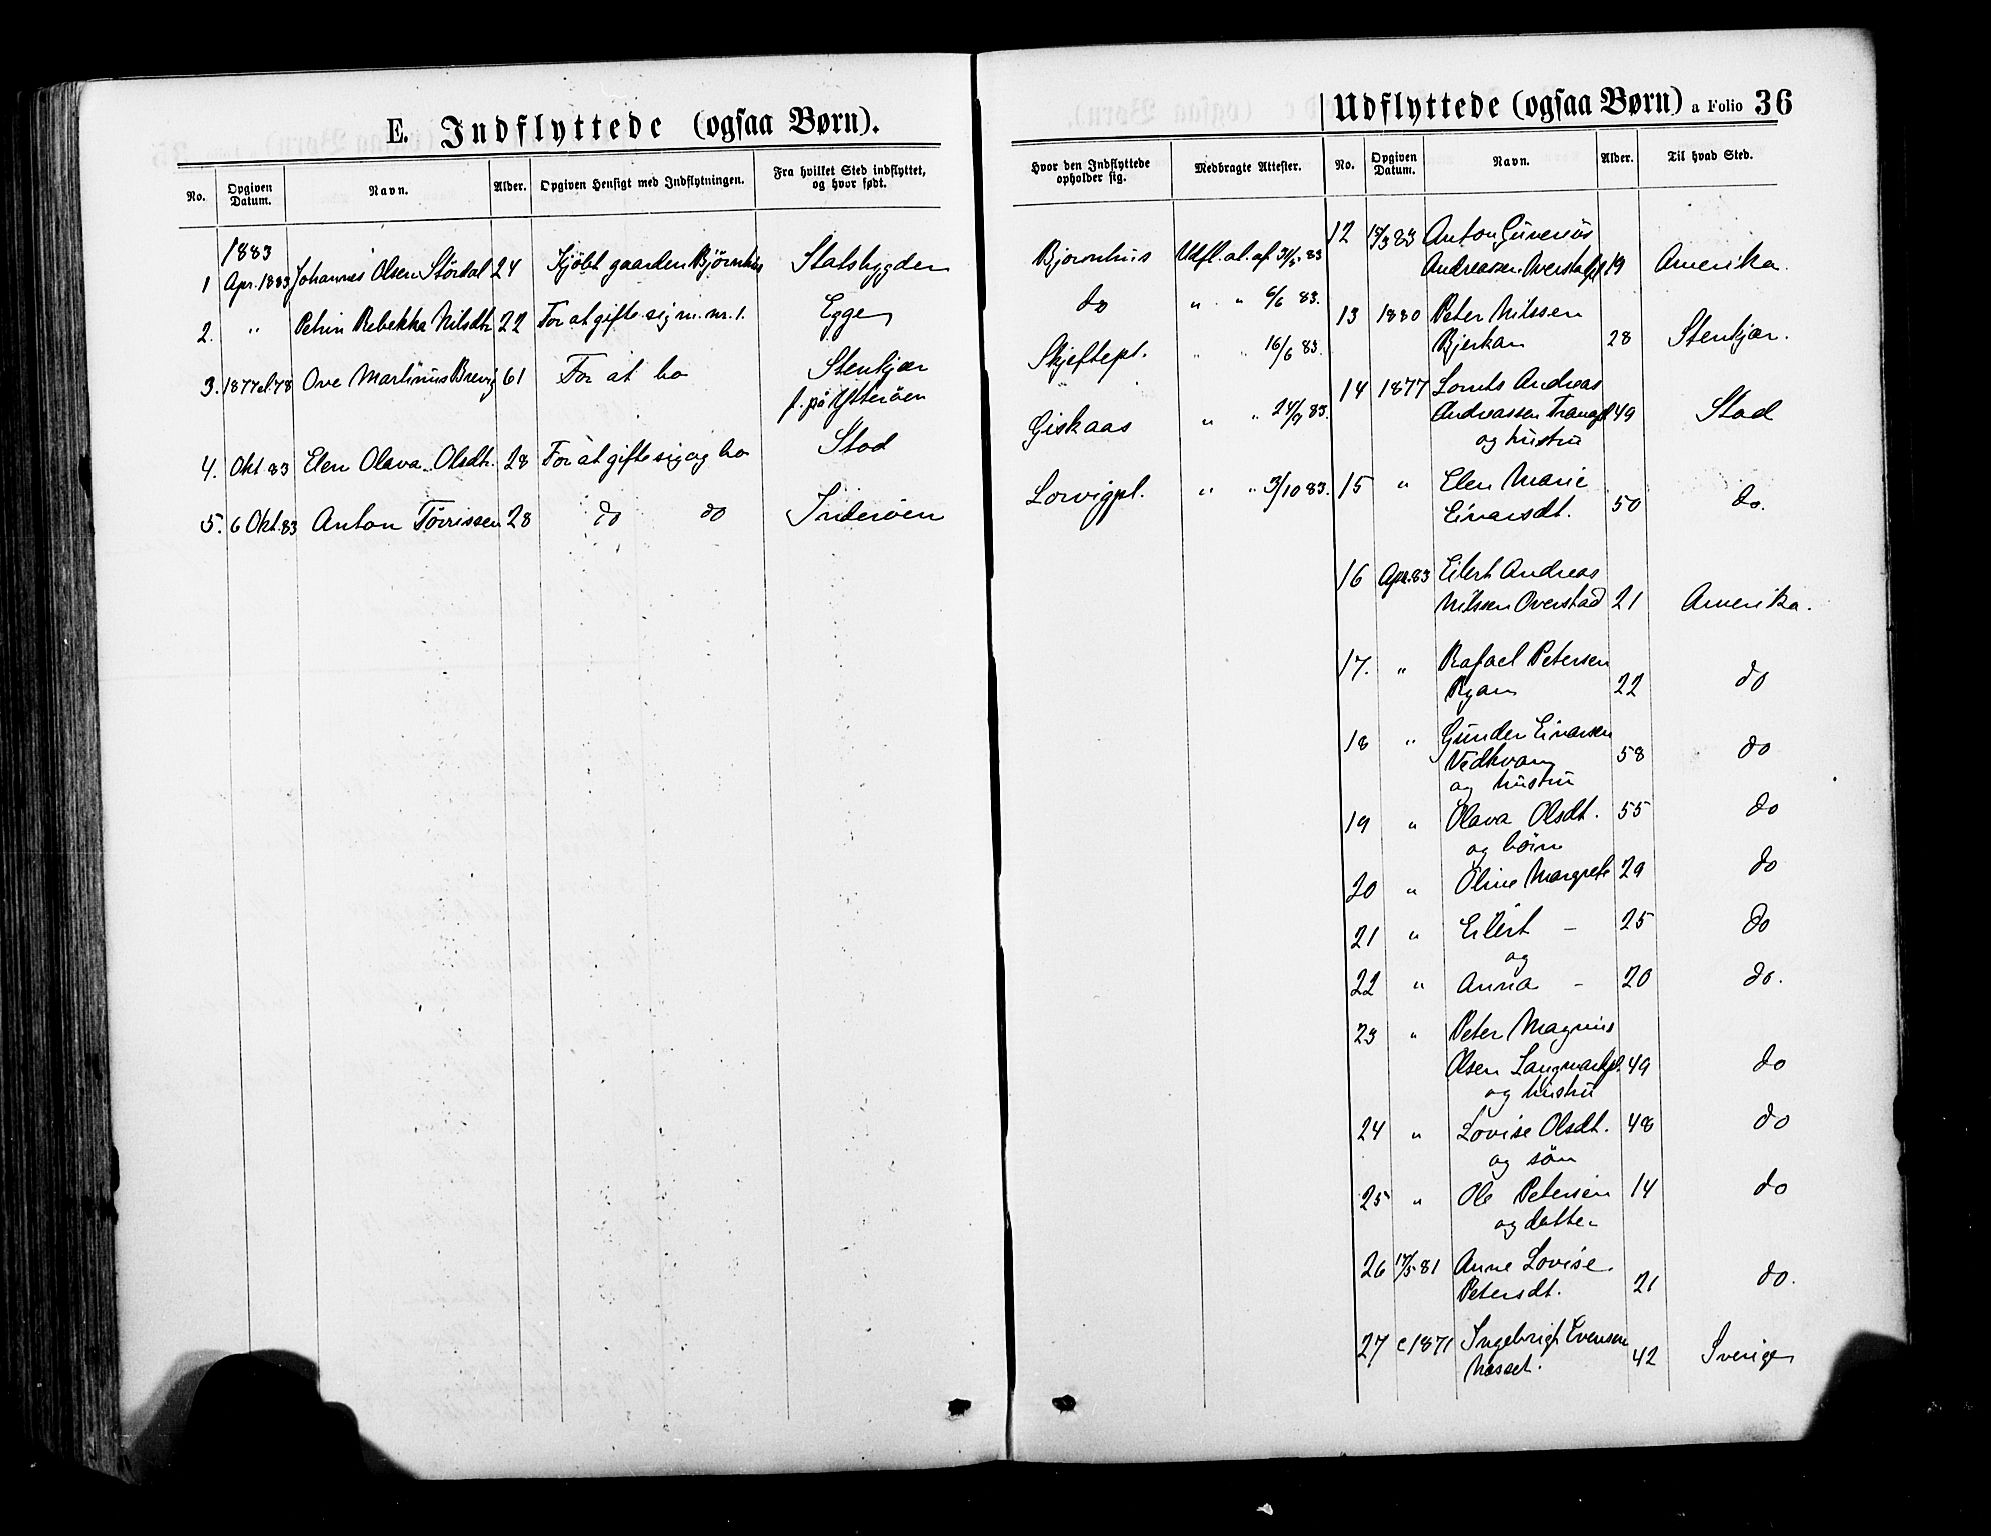 E. Indflyttede (ogsaa Børn).
No. Opgiven Datum. Navn. Alder. Opgiven Hensigt med Indflytningen. Fra hvilket Sted indflyttet, og hvor født.
1883
1 Apr. 1883 Johannes Olsen Stördal 24 Kjöbt gaarden Björnhus Statsbygden
2. " Petrin Rebekka Nilsdtr 22 For at gifte sig m. nr. 1. Egge
3. 1877 el. 78 Ove Martinus Brevig 61 For at bo Stenkjær
f. på Ytteröen
4. Okt 83 Elen Olava Olsdtr. 28 For at gifte sig og bo Stod
5. 6 Okt. 83 Anton Törrissen 28 do do Inderöen
Udflyttede (ogsaa Børn) a Folio 36
Hvor den Indflyttede opholder sig. Medbragte Attester. No. Opgiven Datum. Navn. Alder. Til hvad Sted.
Bjornhus Udfl. at. af 31/5 83
do " " 6/6 83.
Skjeftepl. " " 16/6 83.
Giskaas " " 24/9 83.
Lorvigpl. " " 3/10 83.
12 15/3 83 Anton Gunerius
Andreassen Overstadpl 19 Amerika.
13 1880 Peter Nilssen
Bjerkan 28 Stenkjær.
14 1877 Lornts Andreas
Andreassen 49 Stod
og hustru
15 " Elen Marie
Einarsdt. 50 do.
16 Apr. 83 Eilert Andreas
Nilssen Overstad 21 Amerika.
17. " Rafael Petersen
Rygan 22 do
18 " Gunder Einarsen
Vedkvam 58 do
og hustru
19 " Olava Olsdt. 55 do
og börn
20 " Oline Margrete 29 do
21 " Eilert – 25 do
og
22 " Anna – 20 do.
23 " Peter Magnus
Olsen Langmarkpl. 49 do
og hustru
24 " Lovise Olsdt. 48 do
og sön
25 " Ole Petersen 14 do
og datter
26 17/5 81 Anne Lovise
Petersdt. 21 do.
27 c 1871 Ingebrigt Evensen
Næsset. 42 Sverige